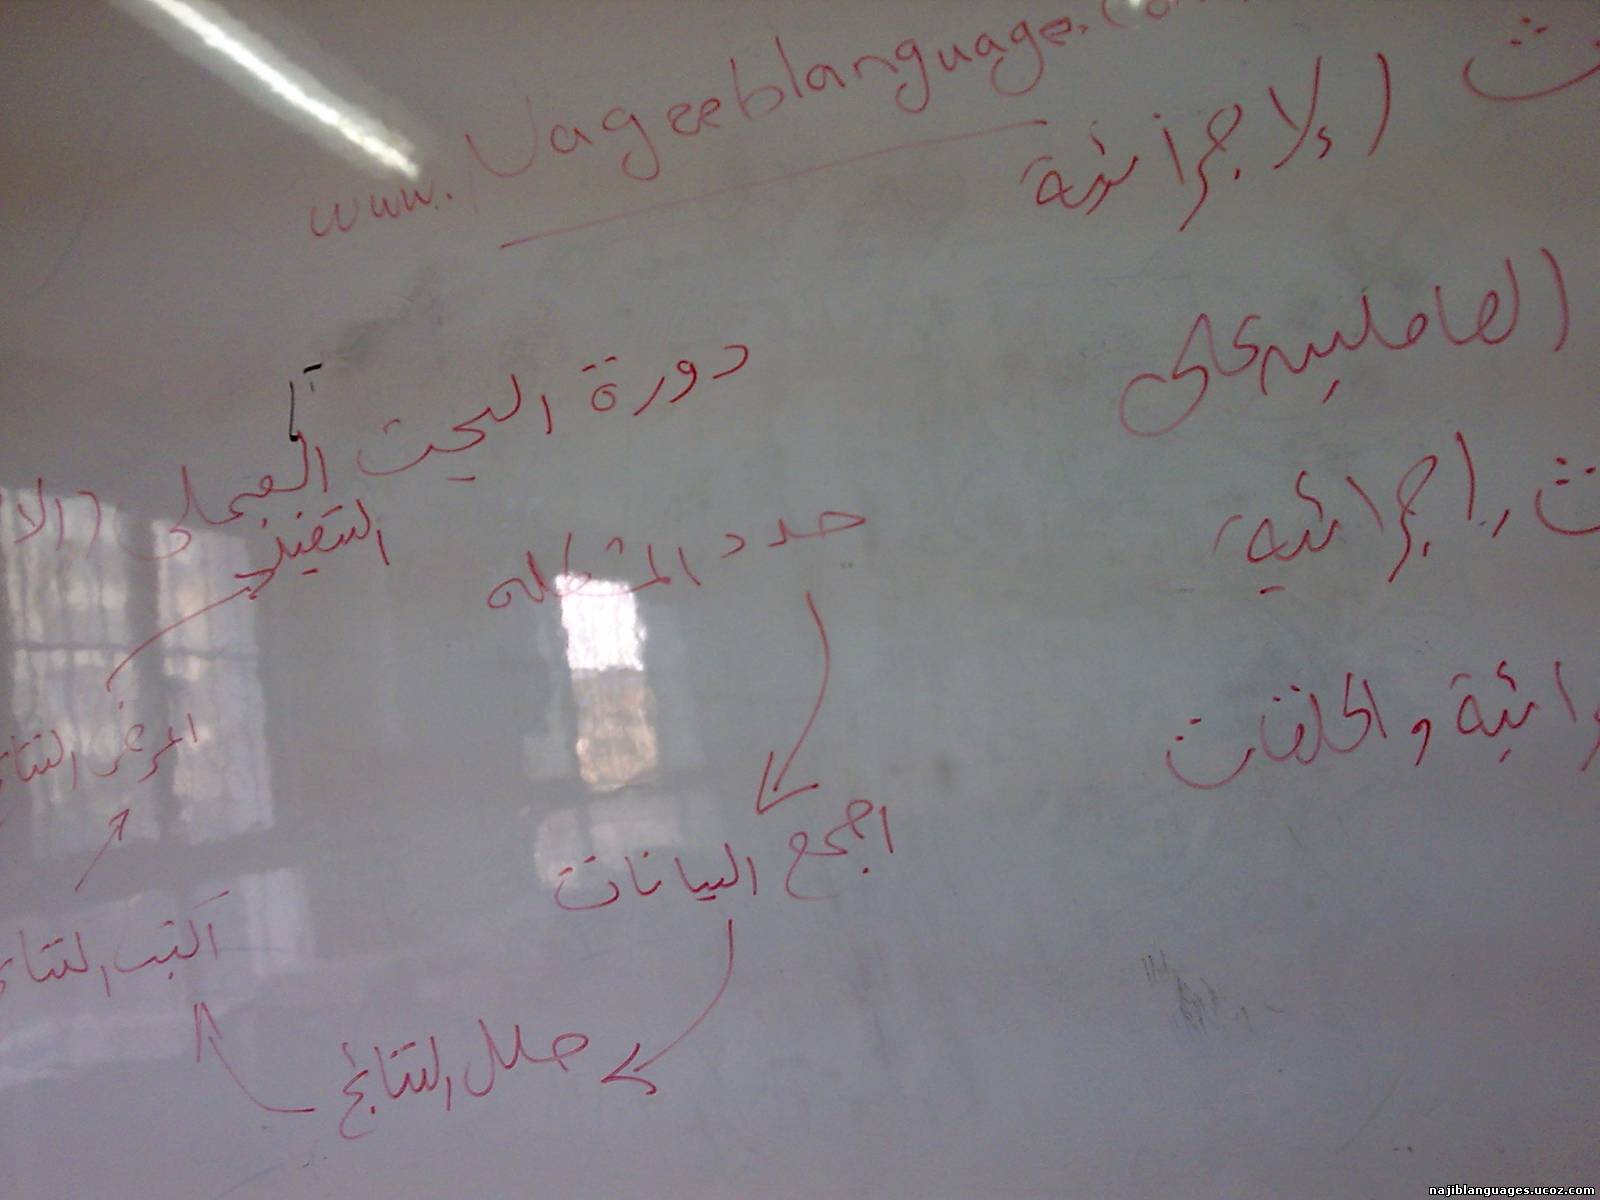 www.Nageeblanguage.com
ث الإجرائية
العاملين على
ث إجرائية
رائية والحلقات
دورة البحث العملي (الا
حدد المشكله
اجمع البيانات
حلل النتائج
اكتب النتائ
اعرض النتائ
التنفيذ
najiblanguages.ucoz.com